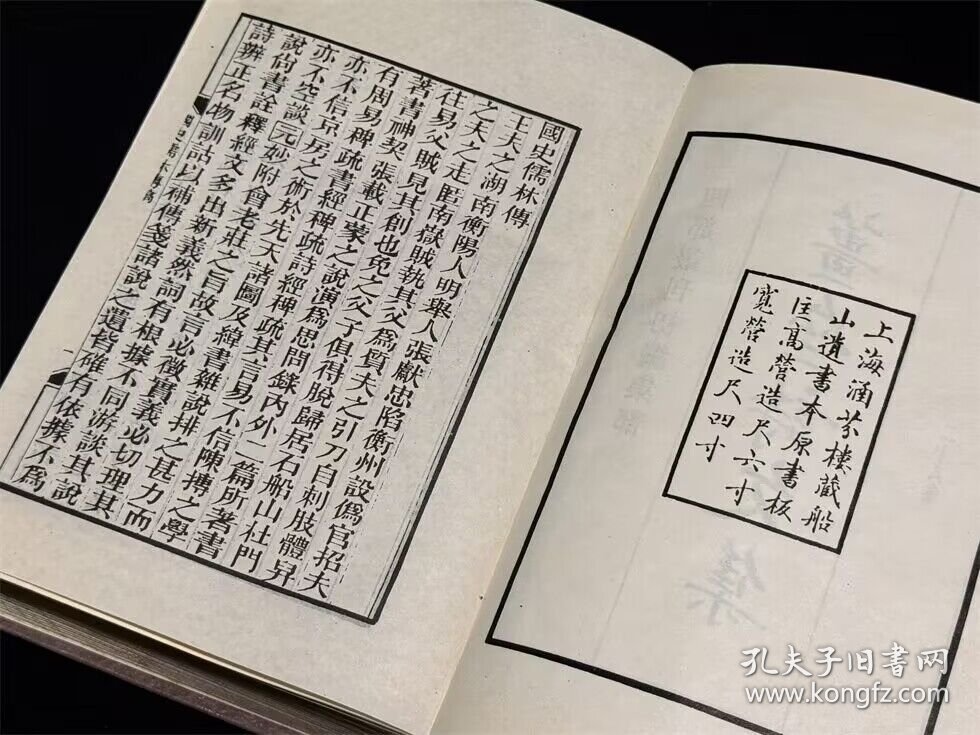 上海涵芬樓藏船
山遺書本原書板
匡高營造尺六寸
寬營造尺四寸
國史儒林傳
王夫之湖南衡陽人明舉人張獻忠陷衡州設僞官招夫
之夫之走匿南嶽賊執其父爲質夫之引刀自刺肢體舁
往易父賊見其創也免之父子俱得脫歸居石船山杜門
著書神契張載正蒙之說演爲思問錄內外二篇所著書
有周易稗疏書經稗疏詩經稗疏其言易不信陳摶之學
亦不信京房之術於先天諸圖及緯書雜說排之甚力而
亦不空談元妙附會老莊之旨故言必徵實義必切理其
說尚書詮釋經文多出新義然詞有根據不同游談其說
詩辨正名物訓詁以補傳箋諸說之遺皆確有依據不爲
一
孔夫子旧书网
www.kongfz.com